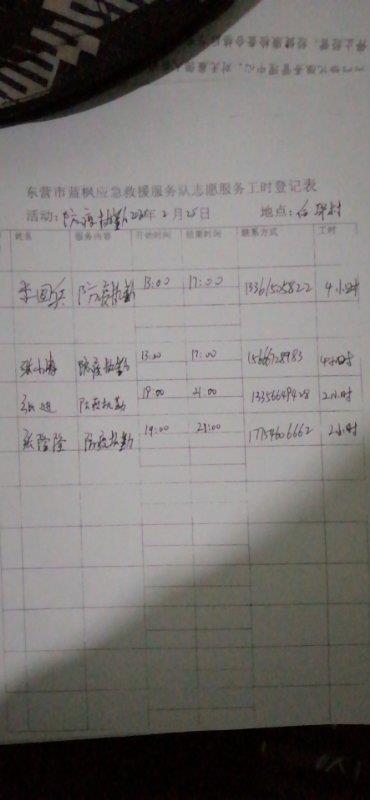 东营市蓝枫应急救援服务队志愿服务工时登记表
活动: 防疫执勤 2020年2月25日 地点:
姓名 服务内容 开始时间 结束时间 联系方式 工时
李国兵 防疫执勤 13:00 17:00 13361525822 4小时
防疫执勤 13:00 17:00 15666728983 4小时
防疫执勤 19:00 21:00 13356649428 2小时
张隆隆 防疫执勤 19:00 21:00 17754606662 2小时